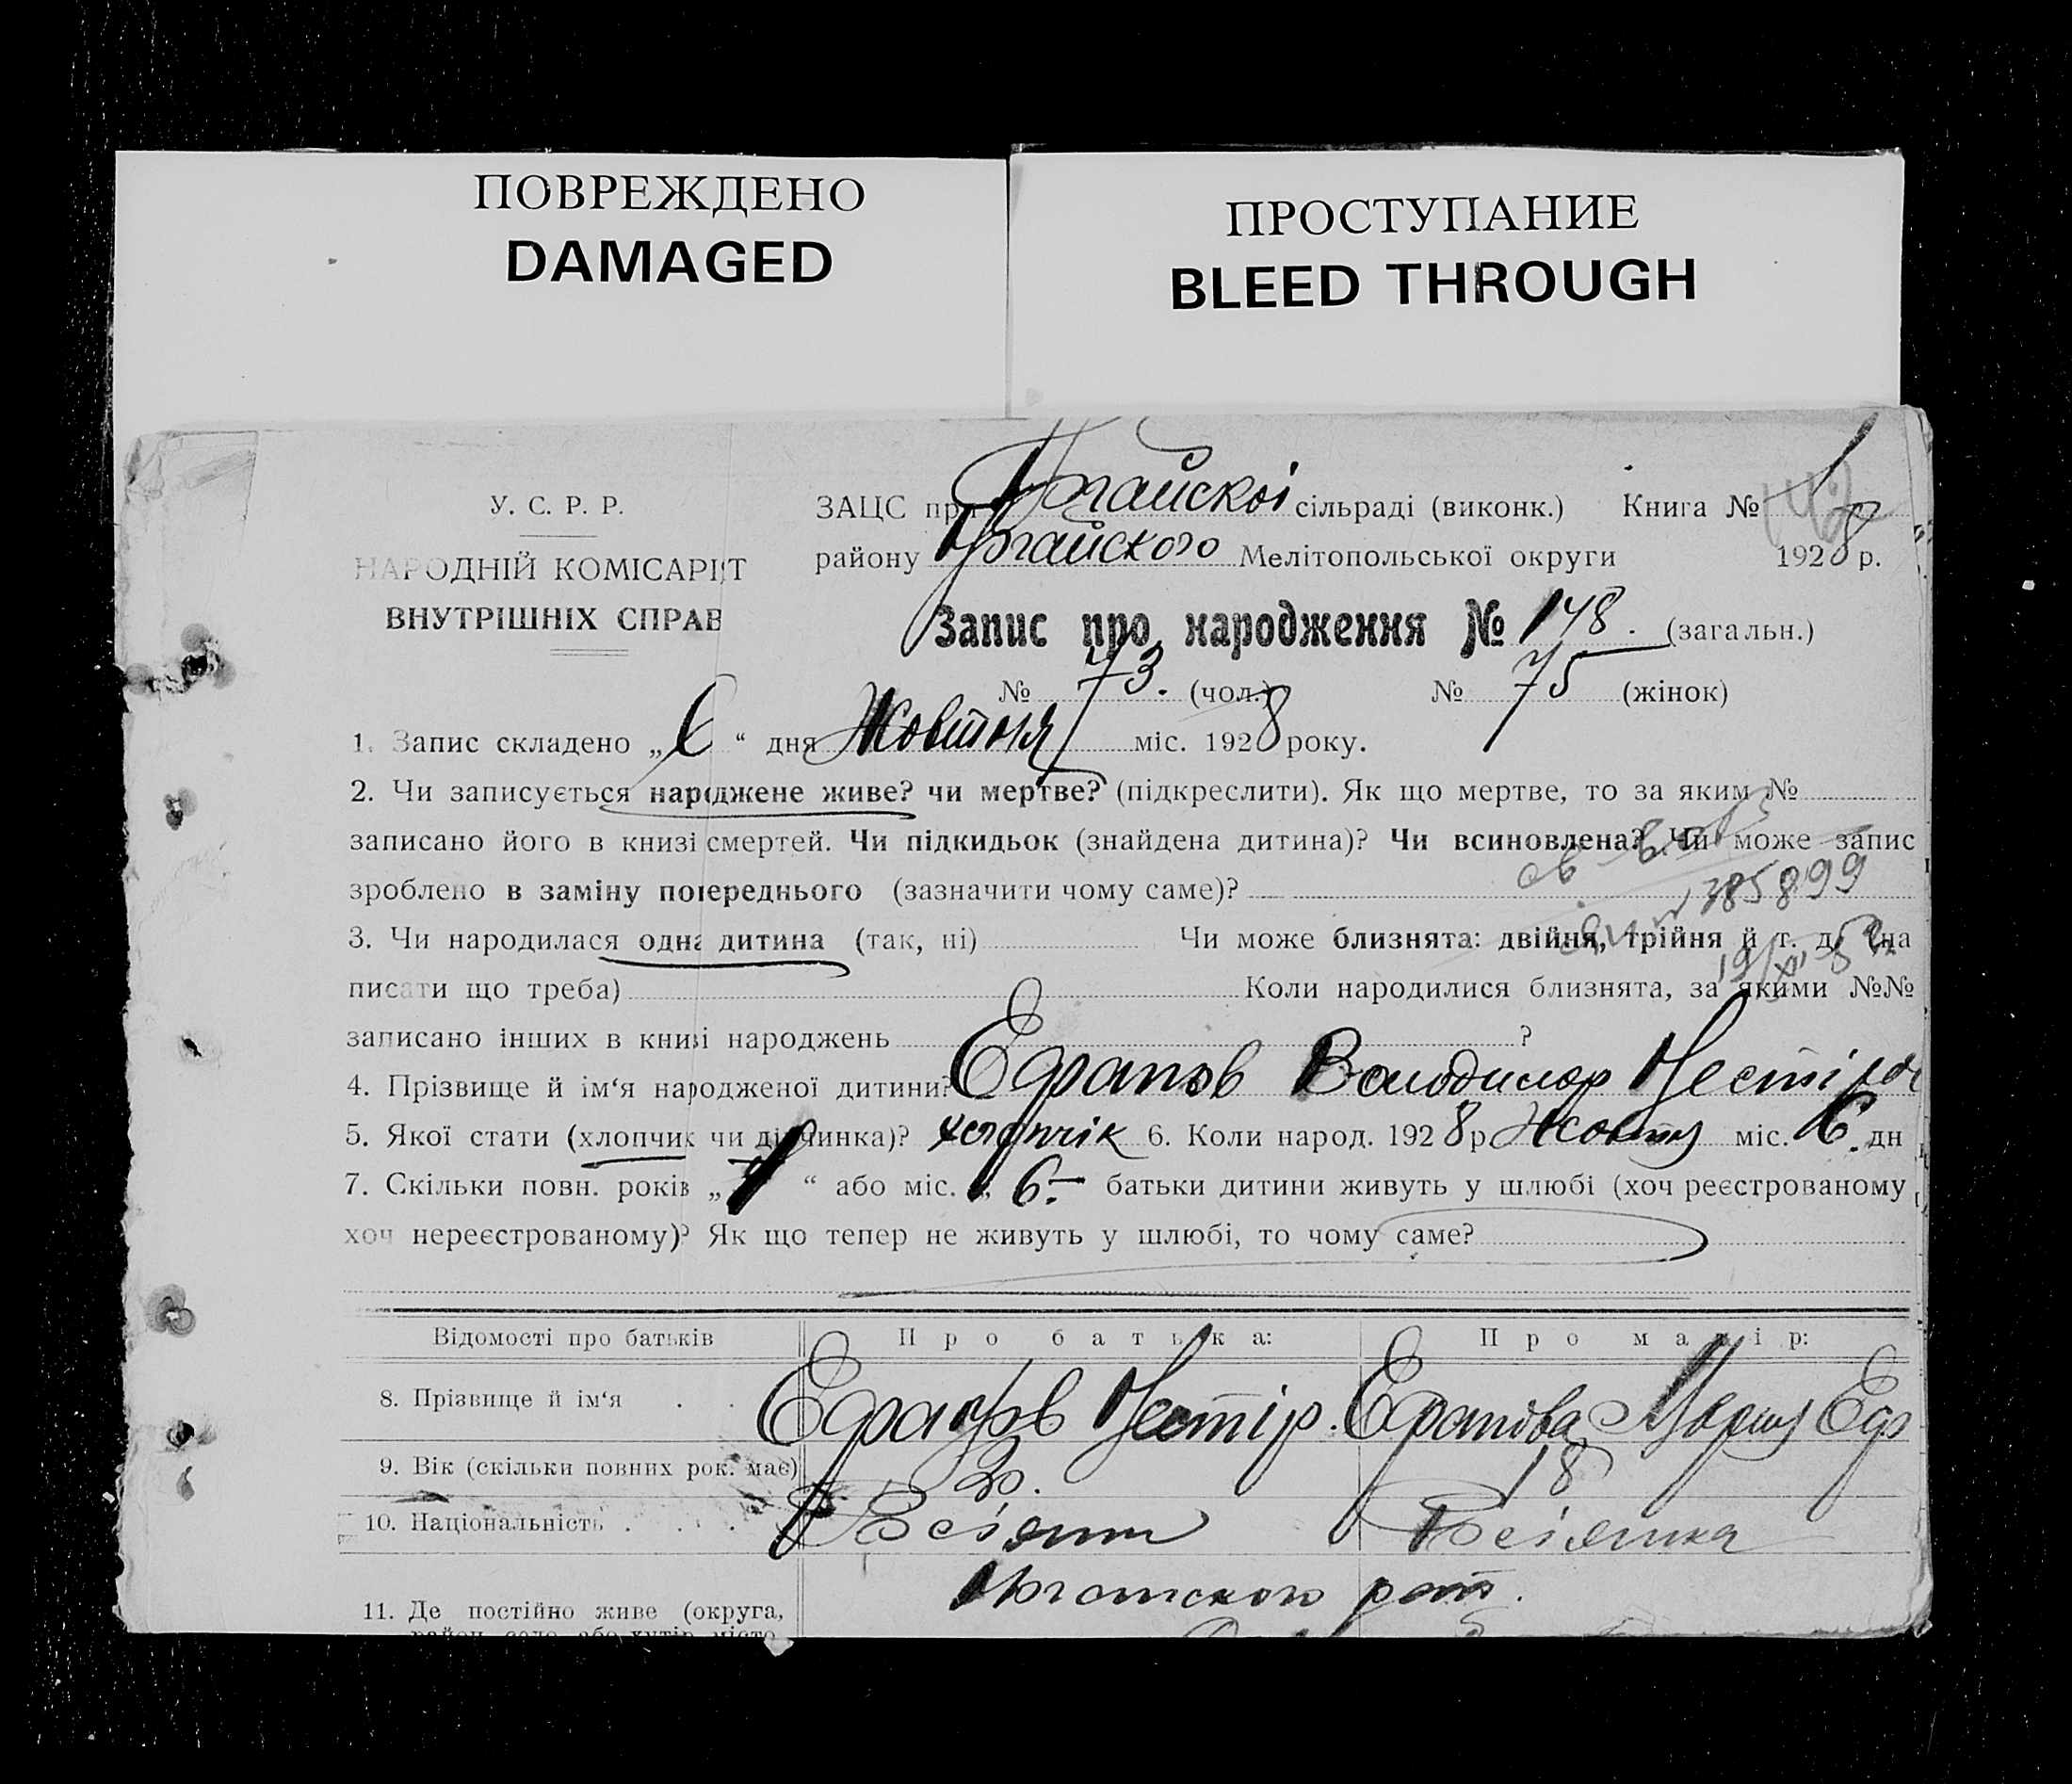 ПОВРЕЖДЕНО
DAMAGED
ПРОСТУПАНИЕ
BLEED THROUGH
У. С. Р. Р.
НАРОДНІЙ КОМІСАРІЯТ
ВНУТРІШНІХ СПРАВ
ЗАЦС при сільраді (виконк.) Книга № 1
району Мелітопольської округи 1928 р.
Запис про народження № 148. (загальн.)
№ 73. (чол.) № 75 (жінок)
1. Запис складено „6“ дня Жовтня міс. 1928 року.
2. Чи записується народжене живе? чи мертве? (підкреслити). Як що мертве, то за яким №
записано його в книзі смертей. Чи підкидьок (знайдена дитина)? Чи всиновлена? Чи може запис
зроблено в заміну попереднього (зазначити чому саме)?
385899
3. Чи народилася одна дитина (так, ні) Чи може близнята: двійня, трійня й т. д. (на
писати що треба) Коли народилися близнята, за якими №№
записано інших в книзі народжень ?
4. Прізвище й ім‘я народженої дитини? Володимир
5. Якої стати (хлопчик чи дівчинка)? хлопчік 6. Коли народ. 1928 р Жовтня міс. 6. дн
7. Скільки повн. років „ “ або міс. „ 6.- батьки дитини живуть у шлюбі (хоч реєстрованому
хоч нереєстрованому)? Як що тепер не живуть у шлюбі, то чому саме?
Відомості про батьків Про батька: Про матір:
8. Прізвище й ім‘я . . Нестір.
9. Вік (скільки повних рок. має) 20. 18
10. Національність . . .
11. Де постійно живе (округа,
район, село або хутір, місто